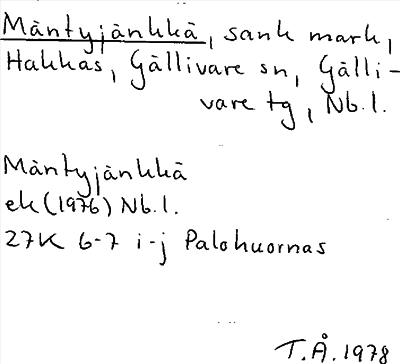 Mäntyjänkkä, sank mark,
Hakkas, Gällivare sn, Gälli-
vare tg, Nb. l.
Mäntyjänkkä
ek (1976) Nb. l.
27K 6-7 i-j Palohuornas
T.Å. 1978